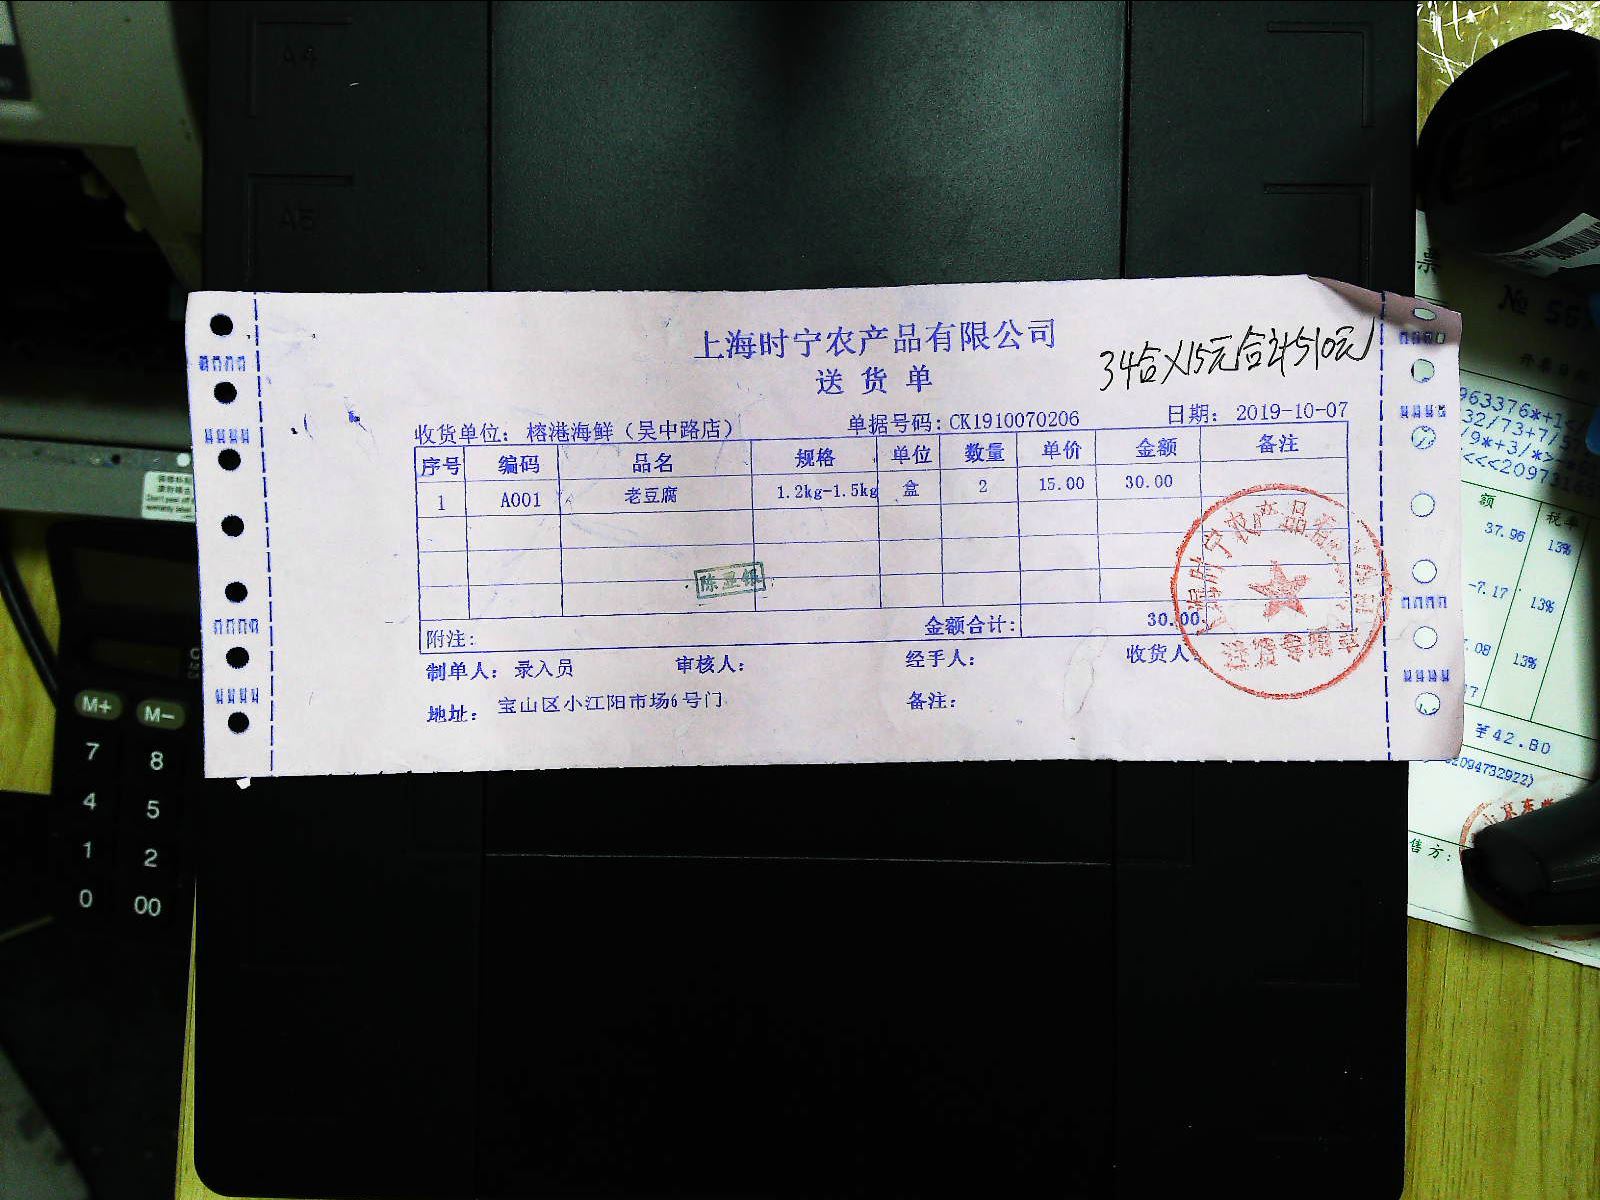 上海时宁农产品有限公司
送货单
34合×15元合计510元
收货单位：榕港海鲜（吴中路店）
单据号码：CK1910070206
日期：2019-10-07
序号 编码 品名 规格 单位 数量 单价 金额 备注
1 A001 老豆腐 1.2kg-1.5kg 盒 2 15.00 30.00
附注： 金额合计： 30.00
制单人：录入员 审核人： 经手人： 收货人：
地址：宝山区小江阳市场6号门 备注：
送货专用章
A4
A5
M+ M-
7 8
4 5
1 2
0 00
票
№
额 税率
37.96 13%
-7.17 13%
.08 13%
¥42.80
2094732922)
售方：